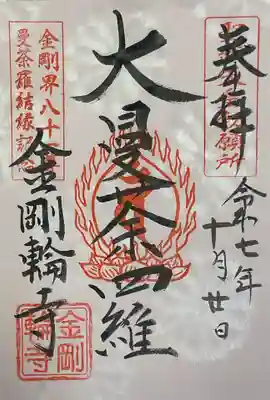 奉拝
令和七年
十月廿日
大曼荼羅
金剛界八十
曼荼羅結縁記念
金剛輪寺
金剛
輪寺